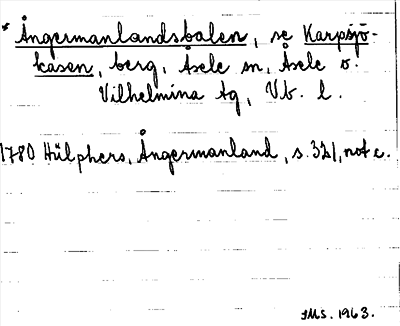 * Ångermanlandsbalen, se Karpsjö-
kasen, berg, Åsele sn, Åsele o.
Vilhelmina tg, Vb. l.
1780 Hülphers, Ångermanland, s. 321, not c.
IMS. 1963.